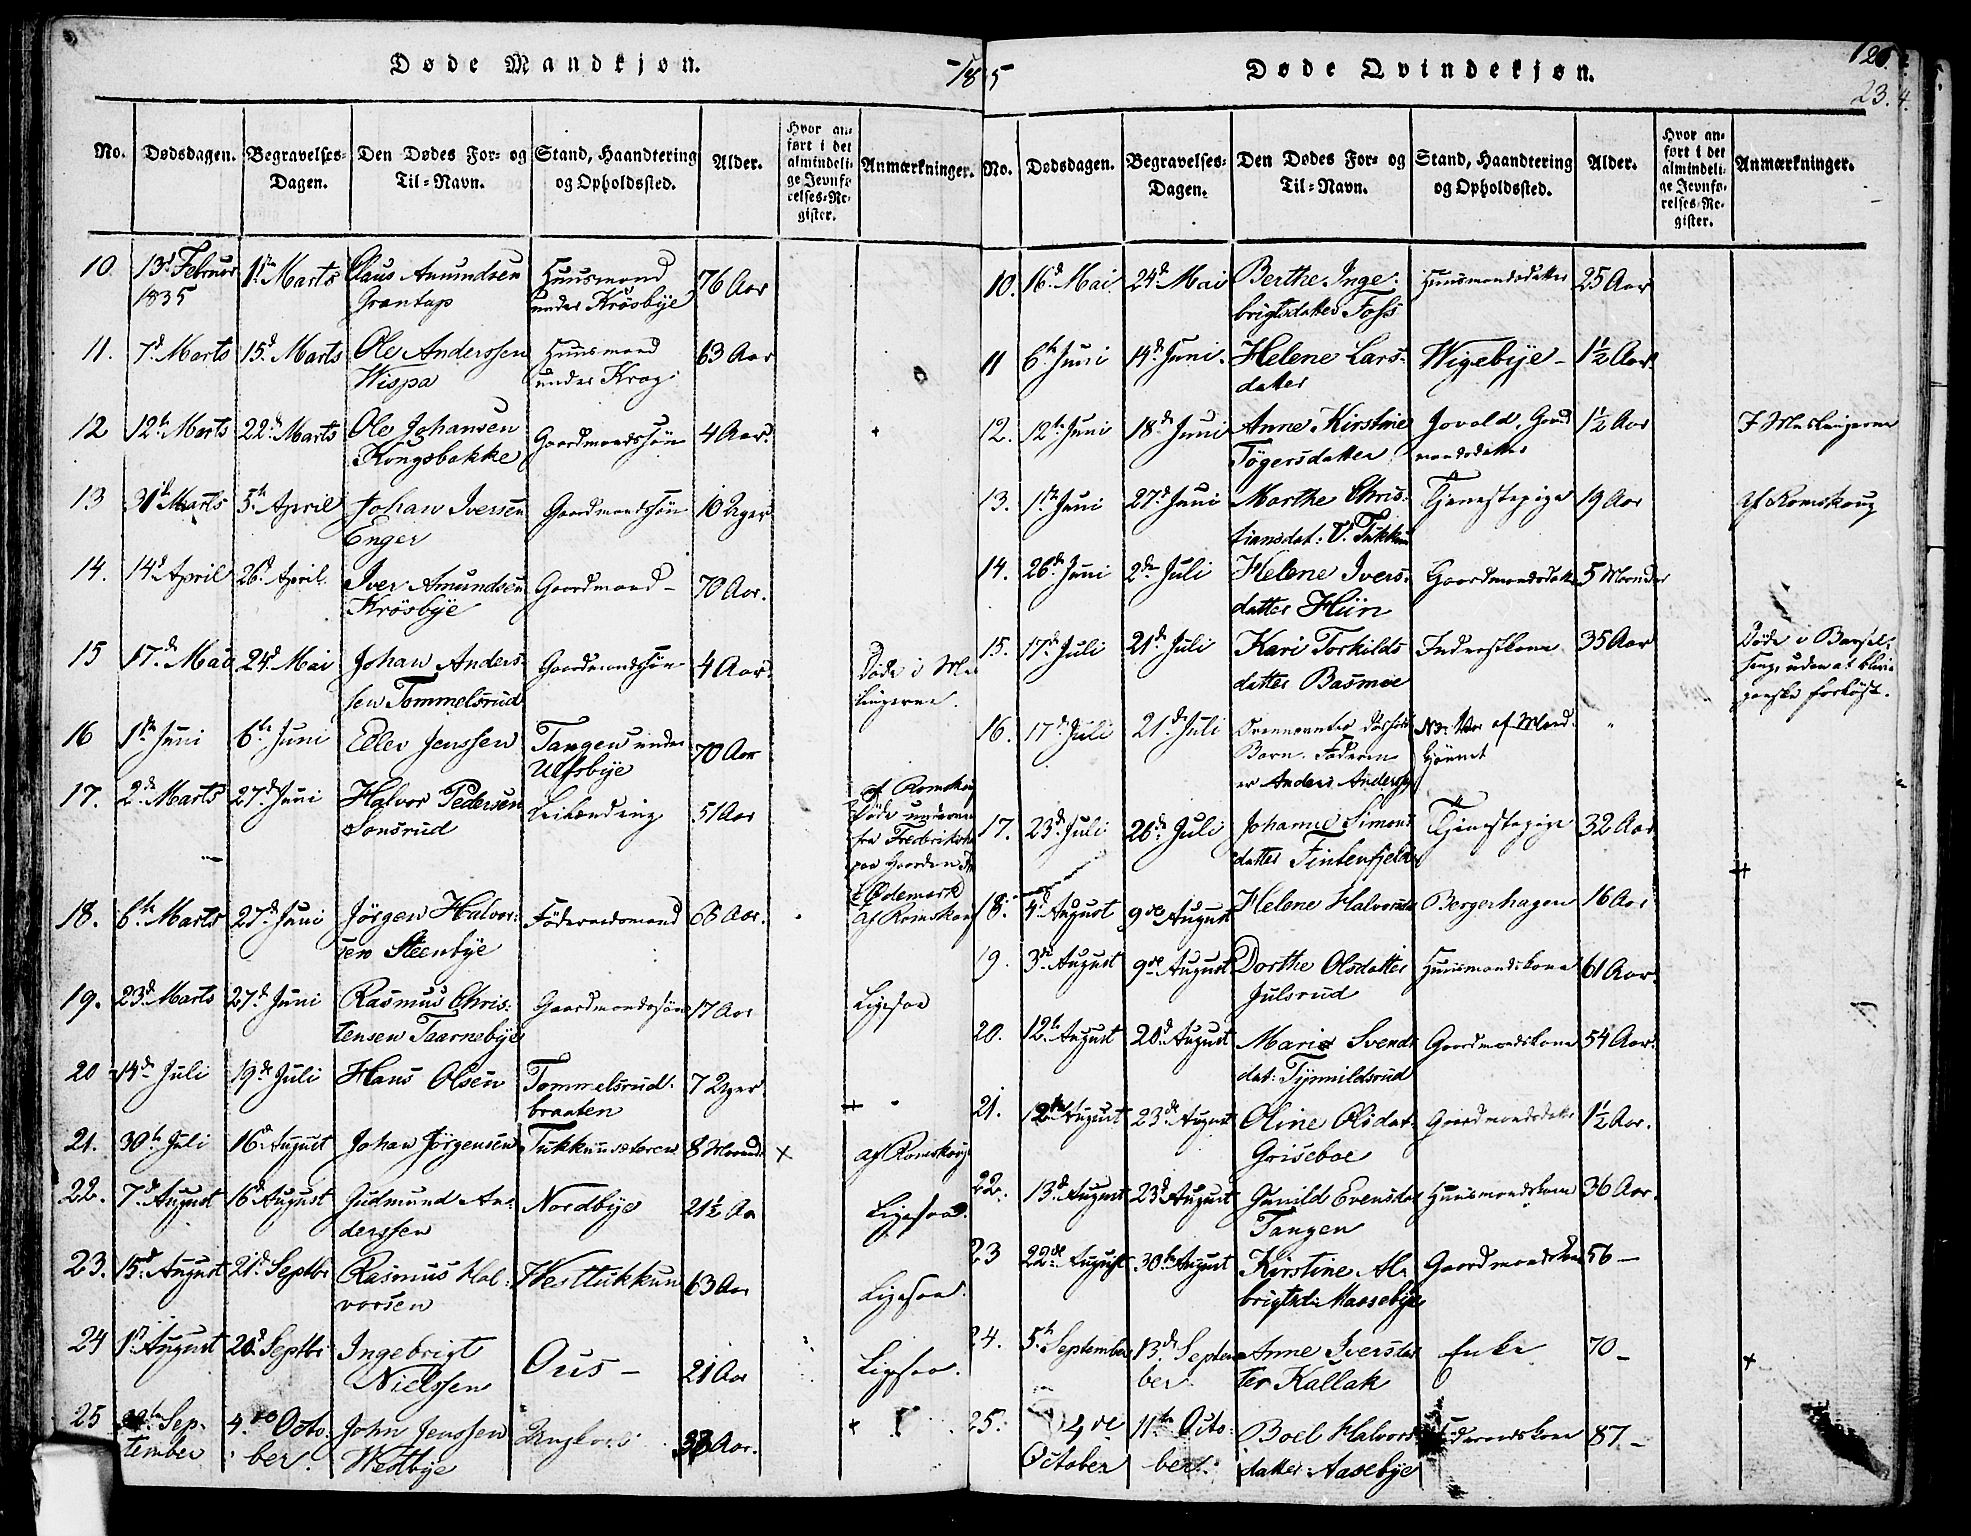 Døde Mandkjøn.
No. Dødsdagen. Begravelses-Dagen. Den Dødes For- og Til-Navn. Stand, Haandtering og Opholdssted. Alder. Hvor anført i det almindelige Jevnførelses-Register. Anmærkninger.
10. 13d Februar 1835 1ste Marts Claus Amundsen Grantap Huusmand under Krösbye 76 Aar
11. 7d Marts 15d Marts Ole Anderssen Wispa Huusmand under Krog 63 Aar
12 12te Marts 22d Marts Ole Johansen Kongsbakke Gaardmandssön 4 Aar.
13 31d Marts 5te April Johan Iversen Enger Gaardmandssön 10 Uger
14. 14d April 26d April. Iver Amundsen Krösbye Gaardmand - 70 Aar.
15 17de Mai 24d Mai Johan Anderssen Tommelsrud Gaardmandssön 4 Aar. Döde i Meslingerne.
16 1ste Juni 6te Juni Edlev Jenssen Tangen under Ulfsbye 70 Aar
17. 2de Marts 27d Juni Halvor Pedersen Sonsrud Leilænding 51 Aar af Romskoug Döde underveis fra Frederikshald paa Gaarden i Ödemark
18. 6te Marts 27d Juni Jörgen Halvorsen Steenbye Föderaadsmand 68 Aar. Af Romskoug
19. 23d Marts 27d Juni Rasmus Christensen Taarnebye Gaardmandssön 17 Aar Ligesaa
20 14de Juli 19de Juli Hans Olsen Tommelsrudbraaten 7 Uger
21. 30te Juli 16d August Johan Jörgensen Tukkunsæteren 8 Maand. × af Romskoug
22. 7d August 16d August Gudmund Anderssen Nordbye 21½ Aar Ligesaa.
23. 15d August 21d Septbr Rasmus Halvorsen Westtukkun 63 Aar Ligesaa.
24 1st August 20d Septbr Ingebrigt Nielssen Ous - 21 Aar Ligesaa.
25 September 4de October. John Jenssen Westbye Ungkarl Aar.
Døde Qvindekjøn.
23.4.
No. Dødsdagen. Begravelses-Dagen. Den Dødes For- og Til-Navn. Stand, Haandtering og Opholdssted. Alder. Hvor anført i det almindelige Jevnførelses-Register. Anmærkninger.
10. 16d Mai 24d Mai Berthe Ingebrigtsdatter Foss Huusmandsdatter 25 Aar
11 6te Juni 14d Juni. Helene Larsdatter Wigebye - 1½ Aar.
12. 12te Juni 18d Juni Anne Kirstine Tögersdatter Jovold, Gaardmandsdatter 1½ Aar I Meslingerne
13. 1ste Juni 27d Juni Marthe Christiansdat: V. Tukkun Tjenestepige 19 Aar Af Romskoug
14. 26de Juni 2den Juli Helene Iversdatter Hiin Gaardmandsdatter 5 Maander
15. 17de Juli 21de Juli Kari Torkildsdatter Basmoe Inderstkone 35 Aar Döde i Barselseng, uden at blive ganske forlöst.
16. 17d Juli 21de Juli Barn. Faderen er Anders Anderss. NB: Var af Mandkjönnet "
17. 23d Juli 26de Juli Johanne Simonsdatter Tintenfjeld Tjenestepige 32 Aar
18. 4d August 9de August Helene Halvorsd. Bergerhagen 16 Aar
19. 3de August 9de August Dorthe Olsdatter Julsrud Huusmandskone 61 Aar.
20. 12te August 20d August Marie Svendsdat: Tynnildsrud Gaardmandskone 54 Aar.
21. 12te August 23de August Oline Olsdat: Griseboe Gaardmandsdatter 1½ Aar.
22. 13d August 23d August Gunild Evensdat Tangen Huusmandskone 36 Aar.
23 22de August 30te August Kirstine Albrigtsd: Kaasebye Gaardmandskone 56 -
24. 5te September 13de September Anne Iversdatter Kallak Enke 70 -
25. 4de October 11te October. Boel Halvorsdatter Aasebye Föderaadskone 87 -